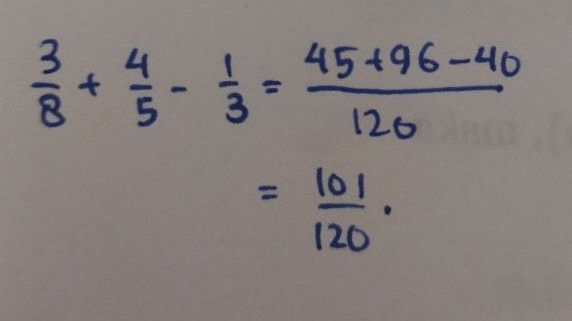 3/8 + 4/5 - 1/3 = 45+96-40/120
= 101/120.